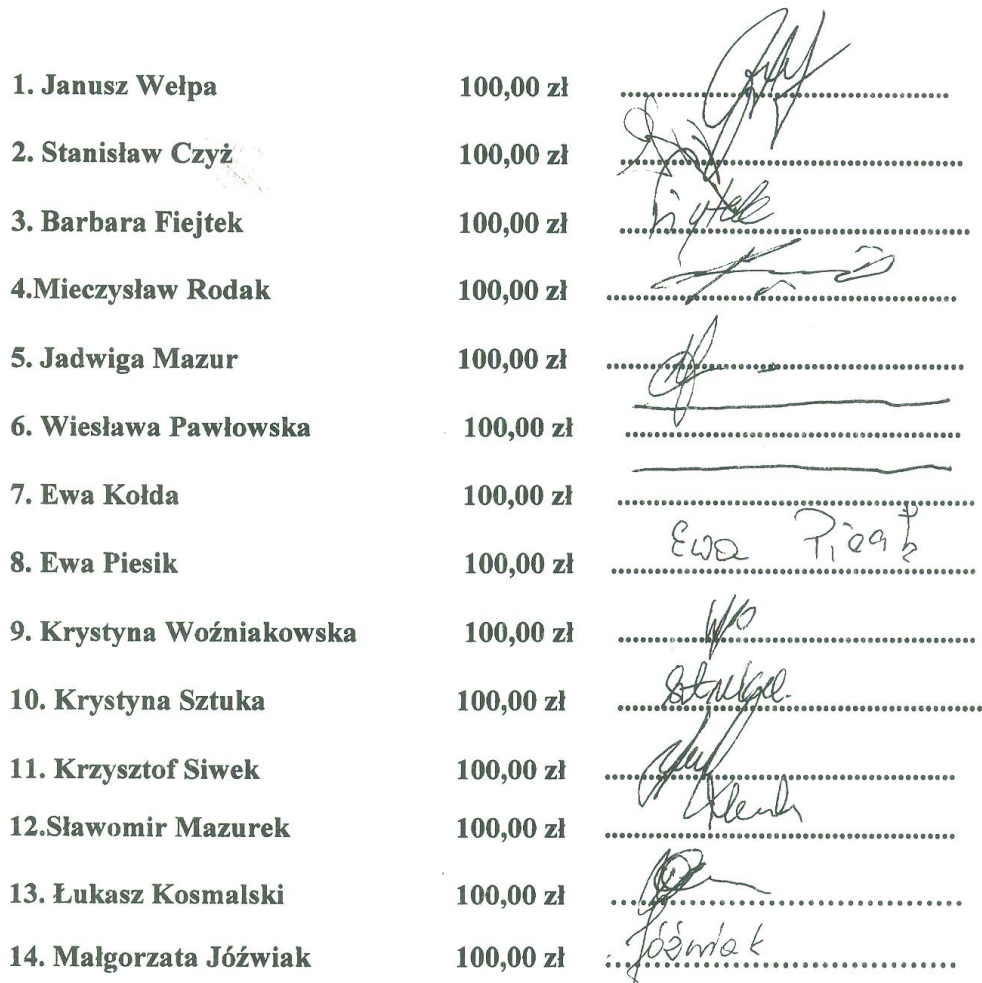 1. Janusz Wełpa 100,00 zł
2. Stanisław Czyż 100,00 zł
3. Barbara Fiejtek 100,00 zł
4.Mieczysław Rodak 100,00 zł
5. Jadwiga Mazur 100,00 zł
6. Wiesława Pawłowska 100,00 zł
7. Ewa Kołda 100,00 zł
8. Ewa Piesik 100,00 zł Ewa
9. Krystyna Woźniakowska 100,00 zł
10. Krystyna Sztuka 100,00 zł
11. Krzysztof Siwek 100,00 zł
12.Sławomir Mazurek 100,00 zł
13. Łukasz Kosmalski 100,00 zł
14. Małgorzata Jóźwiak 100,00 zł Jóźwiak